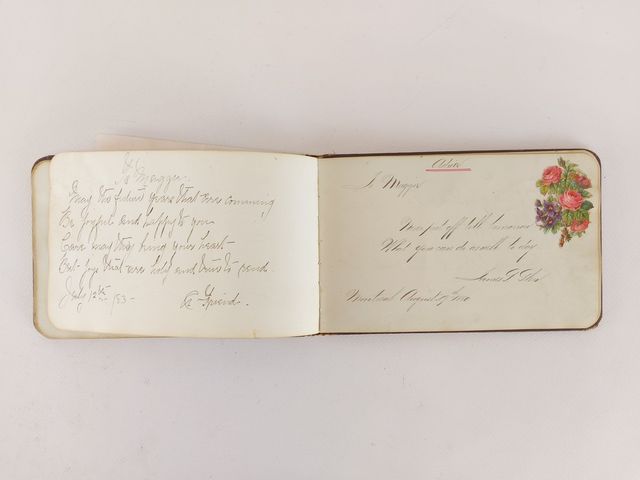 To Maggie.
May the future years that are coming
Be joyful and happy to you
Care may they bring your heart
But joys that are holy and true to
July 12th /83 - A Friend.
Advice
To Maggie
Never put off till tomorrow
What you can do as well to day
Montreal August